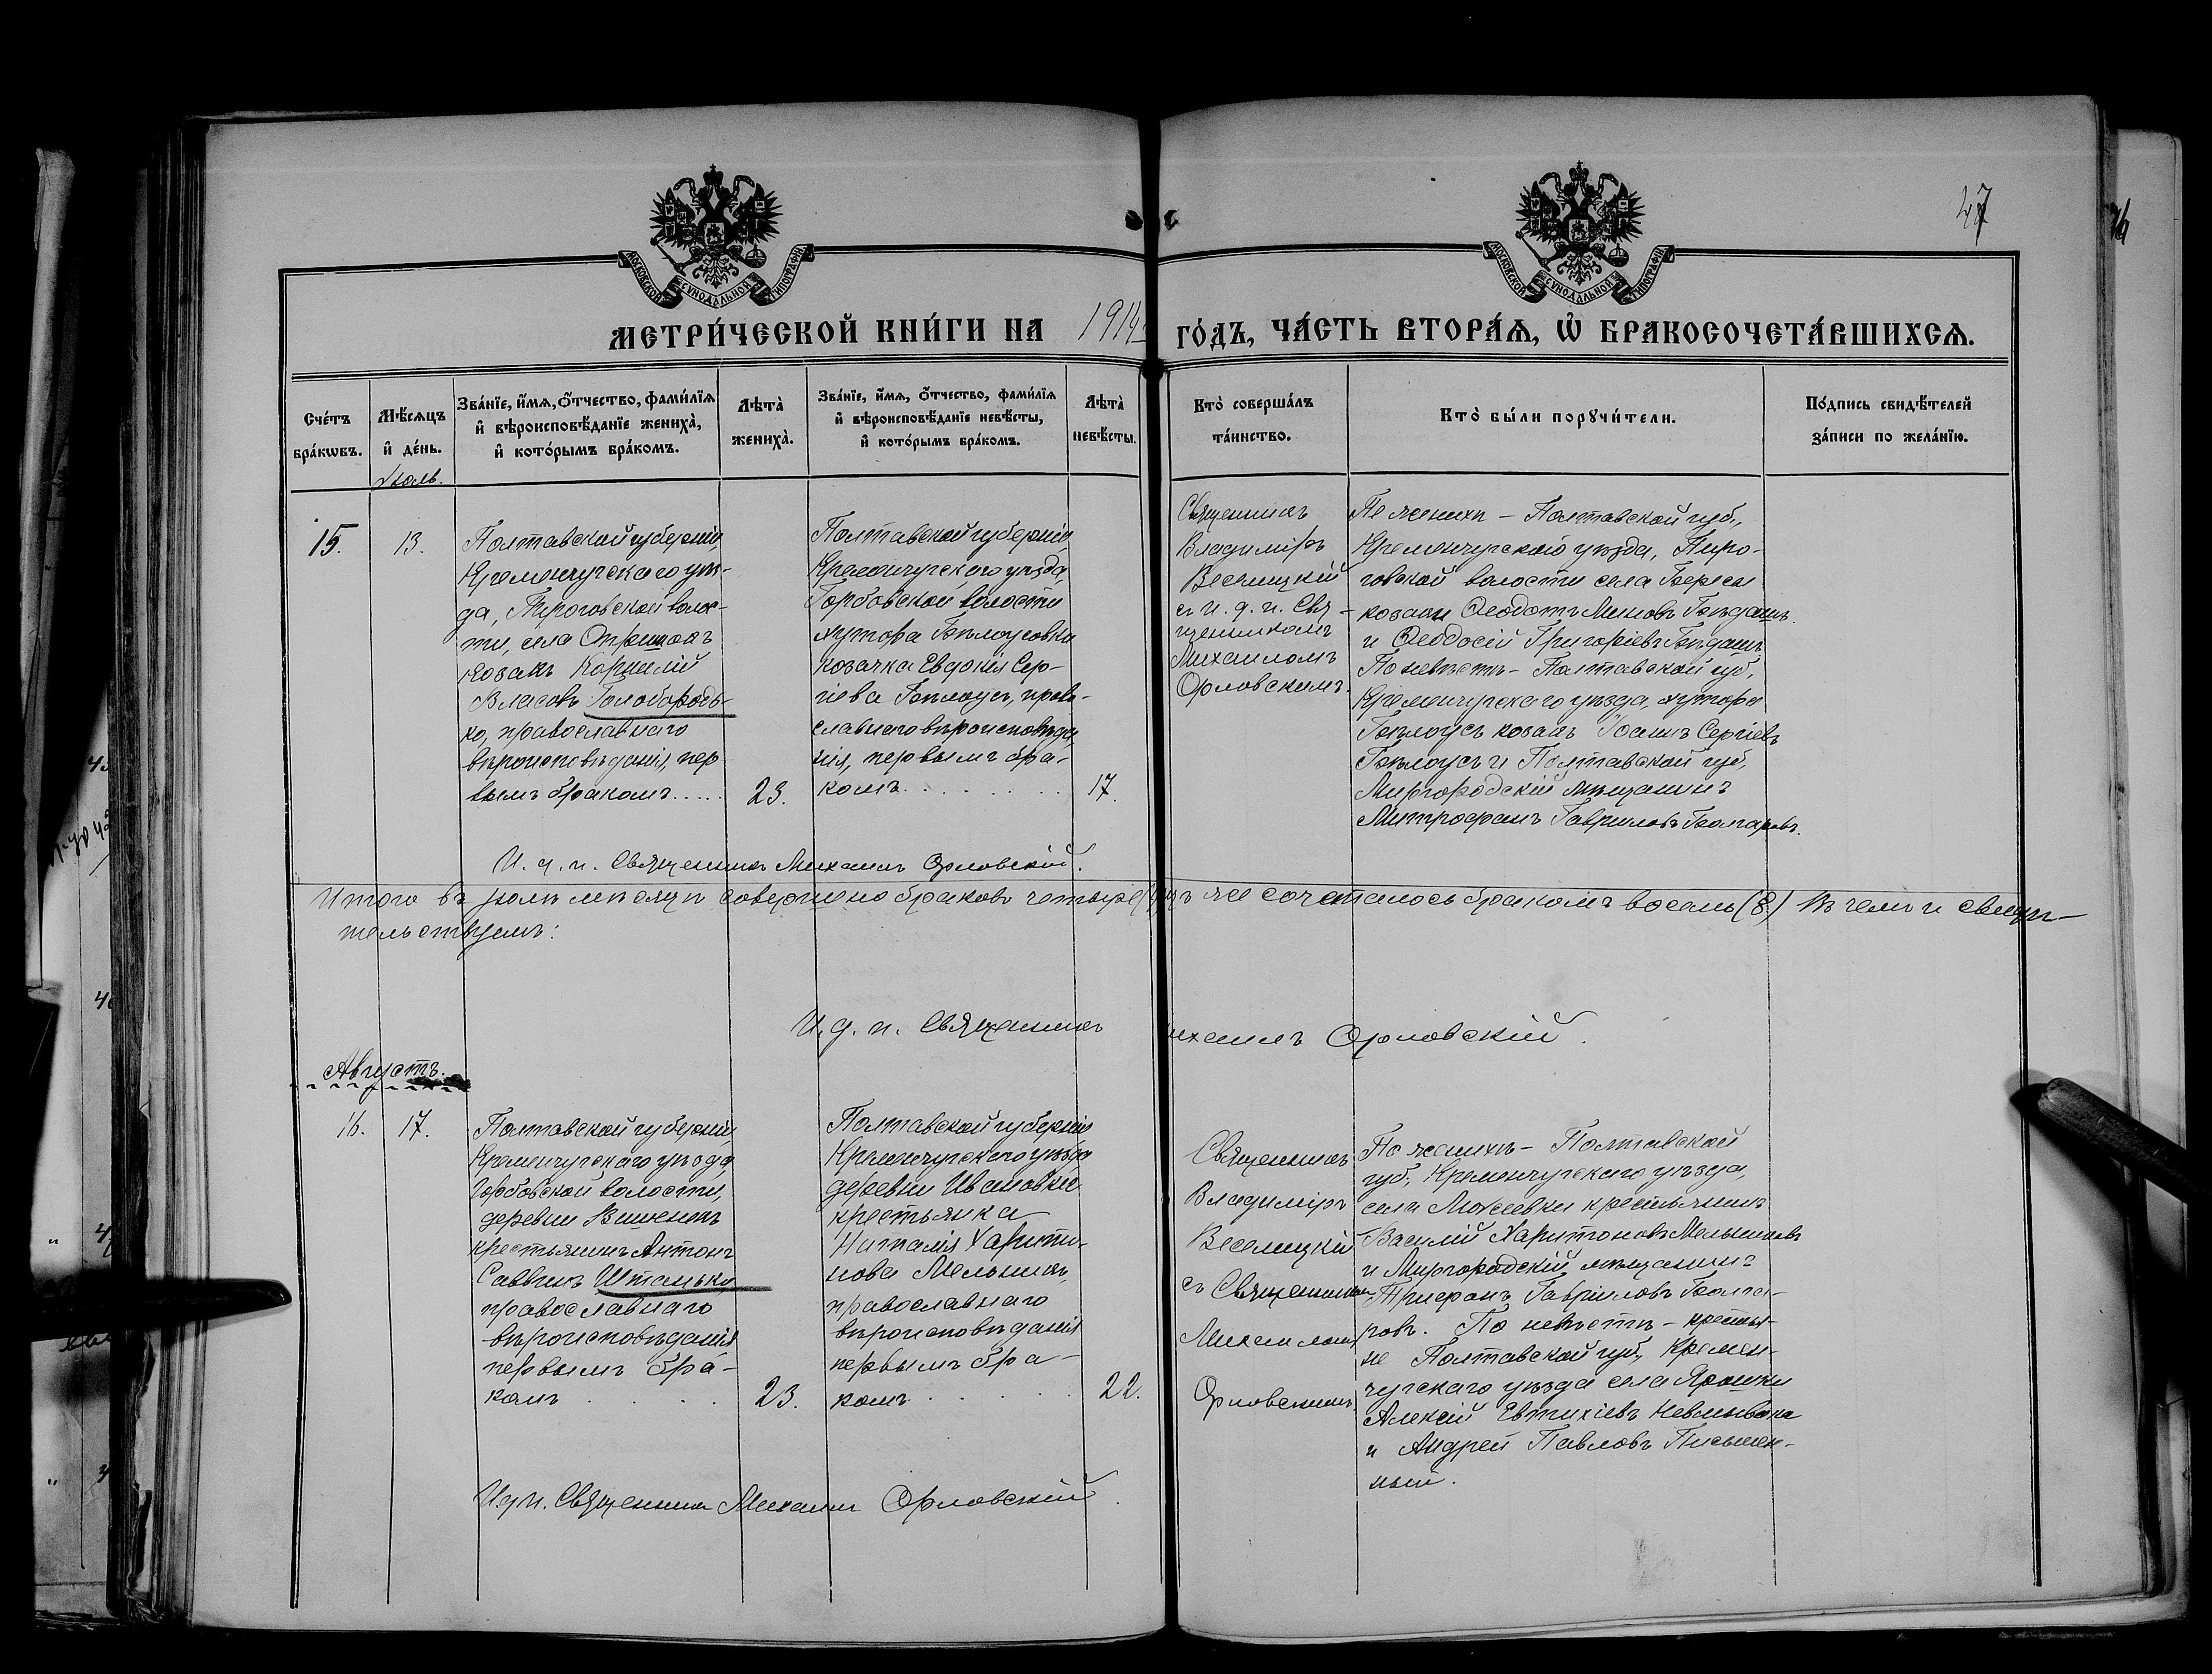 47
МОСКОВСКОЙ СѴНОДАЛЬНОЙ ТИПОГРАФІИ
МОСКОВСКОЙ СѴНОДАЛЬНОЙ ТИПОГРАФІИ
МЕТРИ́ЧЕСКОЙ КНИ́ГИ НА 1914 ГО́ДЪ, ЧА́СТЬ ВТОРА́Ѧ, Ѡ҆ БРАКОСОЧЕТА́ВШИХСѦ.
Сче́тъ
бра́кѡвъ.
Мѣ́сѧцъ
и҆ де́нь.
Зва́нїе, и҆́мѧ, ѻ҆́тчество, фами́лїѧ
и҆ вѣроисповѣ́данїе жениха̀,
и҆ кото́рымъ бра́комъ.
Лѣта̀
жениха̀.
Зва́нїе, и҆́мѧ, ѻ҆́тчество, фами́лїѧ
и҆ вѣроисповѣ́данїе невѣ́сты,
и҆ кото́рымъ бра́комъ.
Лѣта̀
невѣ́сты.
Кто̀ соверша́лъ
та́инство.
Кто̀ бы́ли порꙋчи́тели.
По́дпись свидѣ́телей
за́писи по жела́нїю.
Іюль.
15.
13.
Полтавской губерніи,
Кременчугскаго уѣз-
да, Пироговской волос-
ти, села Отришокъ
козакъ Корнилій
Власовъ Голобородь-
ко, православнаго
вѣроисповѣданія, пер
вымъ бракомъ.....
23.
Полтавской губерніи,
Кременчугскаго уѣзда,
Горбовской волости
хутора Бѣлоусовки
козачка Евдокія Сер-
гіева Бѣлоусъ, право-
славнаго вѣроисповѣда
нія, первымъ бра-
комъ.........
17.
Священникъ
Владиміръ
Веселицкій
съ И. д. п. Свя-
щенникомъ
Михаиломъ
Орловскимъ.
По женихѣ - Полтавской губ.,
Кременчугскаго уѣзда, Пиро-
говской волости села
козаки Ѳеодотъ Миновъ
и Ѳеодосій Григоріевъ
По невѣстѣ - Полтавской губ,
Кременчугскаго уѣзда, хутора
Бѣлоусъ козакъ Іоаннъ Сергіевъ
Бѣлоусъ и Полтавской губ,
Миргородскій мѣщанинъ
Митрофанъ Гавриловъ Болгаровъ.
И. д. п. Священника Михаилъ Орловскій.
Итого въ Іюлѣ мѣсяцѣ совершено браковъ четыре же сочеталось бракомъ восемь (8.) Въ чемъ и свидѣ-
тельствуемъ:
И. д. п. Священника Михаилъ Орловскій.
Августъ.
16.
17.
Полтавской губерніи,
Кременчугскаго уѣзда,
Горбовской волости,
деревни Вишенокъ
крестьянинъ Антонъ
Саввинъ Штанько,
православнаго
вѣроисповѣданія
первымъ бра-
комъ ....
23.
Полтавской губерніи
Кременчугскаго уѣзда
деревни Ивановки
крестьянка
Наталія Харито-
нова Мельникъ,
православнаго
вѣроисповѣданія
первымъ бра-
комъ ......
22.
Священникъ
Владиміръ
Веселицкій
съ Священникомъ
Михаиломъ
Орловскимъ.
По женихѣ - Полтавской
губ., Кременчугскаго уѣзда,
села крестьянинъ
Василій Харитоновъ Мельникъ
и Миргородскій мѣщанинъ
Трифонъ Гавриловъ Болга-
ровъ. По невѣстѣ - крестья-
не Полтавской губ., Кремен-
чугскаго уѣзда села Ярошки
Алексій Евтихіевъ
и Андрей Павловъ Писемен-
ный.
И. д. п. Священника Михаилъ Орловскій.